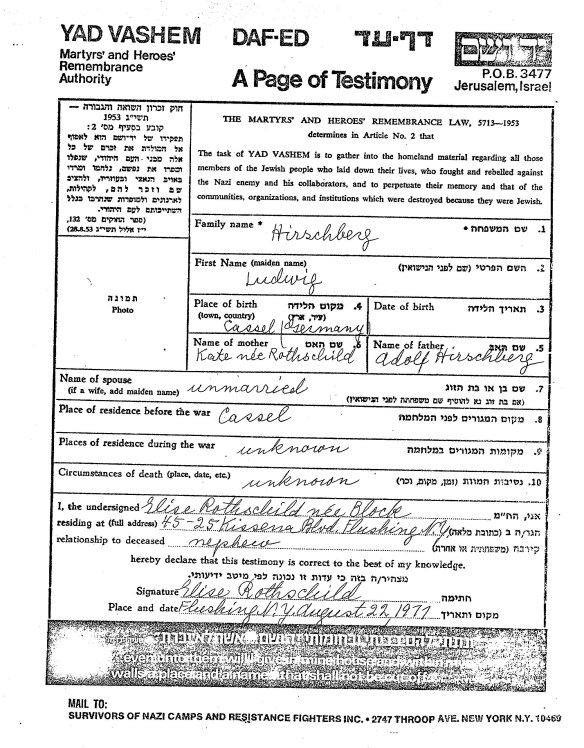 YAD VASHEM DAF-ED דף-עד
Martyrs' and Heroes'
Remembrance
Authority
A Page of Testimony
P.O.B. 3477
Jerusalem, Israel
חוק זכרון השואה והגבורה —
תשי״ג 1953
קובע בסעיף מס׳ 2:
תפקידו של יד-ושם הוא לאסוף
אל המולדת את זכרם של כל
אלה מבני העם היהודי, שנפלו
ומסרו את נפשם, נלחמו ומרדו
באויב הנאצי ובעוזריו, ולהציב
שם וזכר להם, לקהילות,
לארגונים ולמוסדות שנחרבו בגלל
השתייכותם לעם היהודי.
(ספר החוקים מס׳ 132,
י״ז אלול תשי״ג 28.8.53)
THE MARTYRS' AND HEROES' REMEMBRANCE LAW, 5713—1953
determines in Article No. 2 that
The task of YAD VASHEM is to gather into the homeland material regarding all those
members of the Jewish people who laid down their lives, who fought and rebelled against
the Nazi enemy and his collaborators, and to perpetuate their memory and that of the
communities, organizations, and institutions which were destroyed because they were Jewish.
Family name * Hirschberg 1. שם המשפחה •
First Name (maiden name) 2. השם הפרטי (שם לפני הנישואין)
Ludwig
תמונה
Photo
Place of birth 4. מקום הלידה
(town, country) (עיר, ארץ)
Cassel Germany
Date of birth 3. תאריך הלידה
Name of mother 6. שם האם
Kate née Rothschild
Name of father 5. שם האב
Adolf Hirschberg
Name of spouse 7. שם בן או בת הזוג
(if a wife, add maiden name) unmarried (אם בת זוג נא להוסיף שם משפחתה לפני הנישואין)
Place of residence before the war Cassel 8. מקום המגורים לפני המלחמה
Places of residence during the war unknown 9. מקומות המגורים במלחמה
Circumstances of death (place, date, etc.) unknown 10. נסיבות המוות (זמן, מקום, וכו׳)
I, the undersigned Elise Rothschild née Block אני, הח״מ
residing at (full address) 45-25 Kissena Blvd. Flushing N.Y. הגר/ה ב (כתובת מלאה)
relationship to deceased nephew קירבה (משפחתית או אחרת)
hereby declare that this testimony is correct to the best of my knowledge.
מצהיר/ה בזה כי עדות זו נכונה לפי מיטב ידיעותי.
Signature Elise Rothschild חתימה
Place and date Flushing N.Y. August 22, 1977 מקום ותאריך
...even unto them will I give in mine house and within my
walls a place and a name... that shall not be cut off
MAIL TO:
SURVIVORS OF NAZI CAMPS AND RESISTANCE FIGHTERS INC. • 2747 THROOP AVE. NEW YORK N.Y. 10469